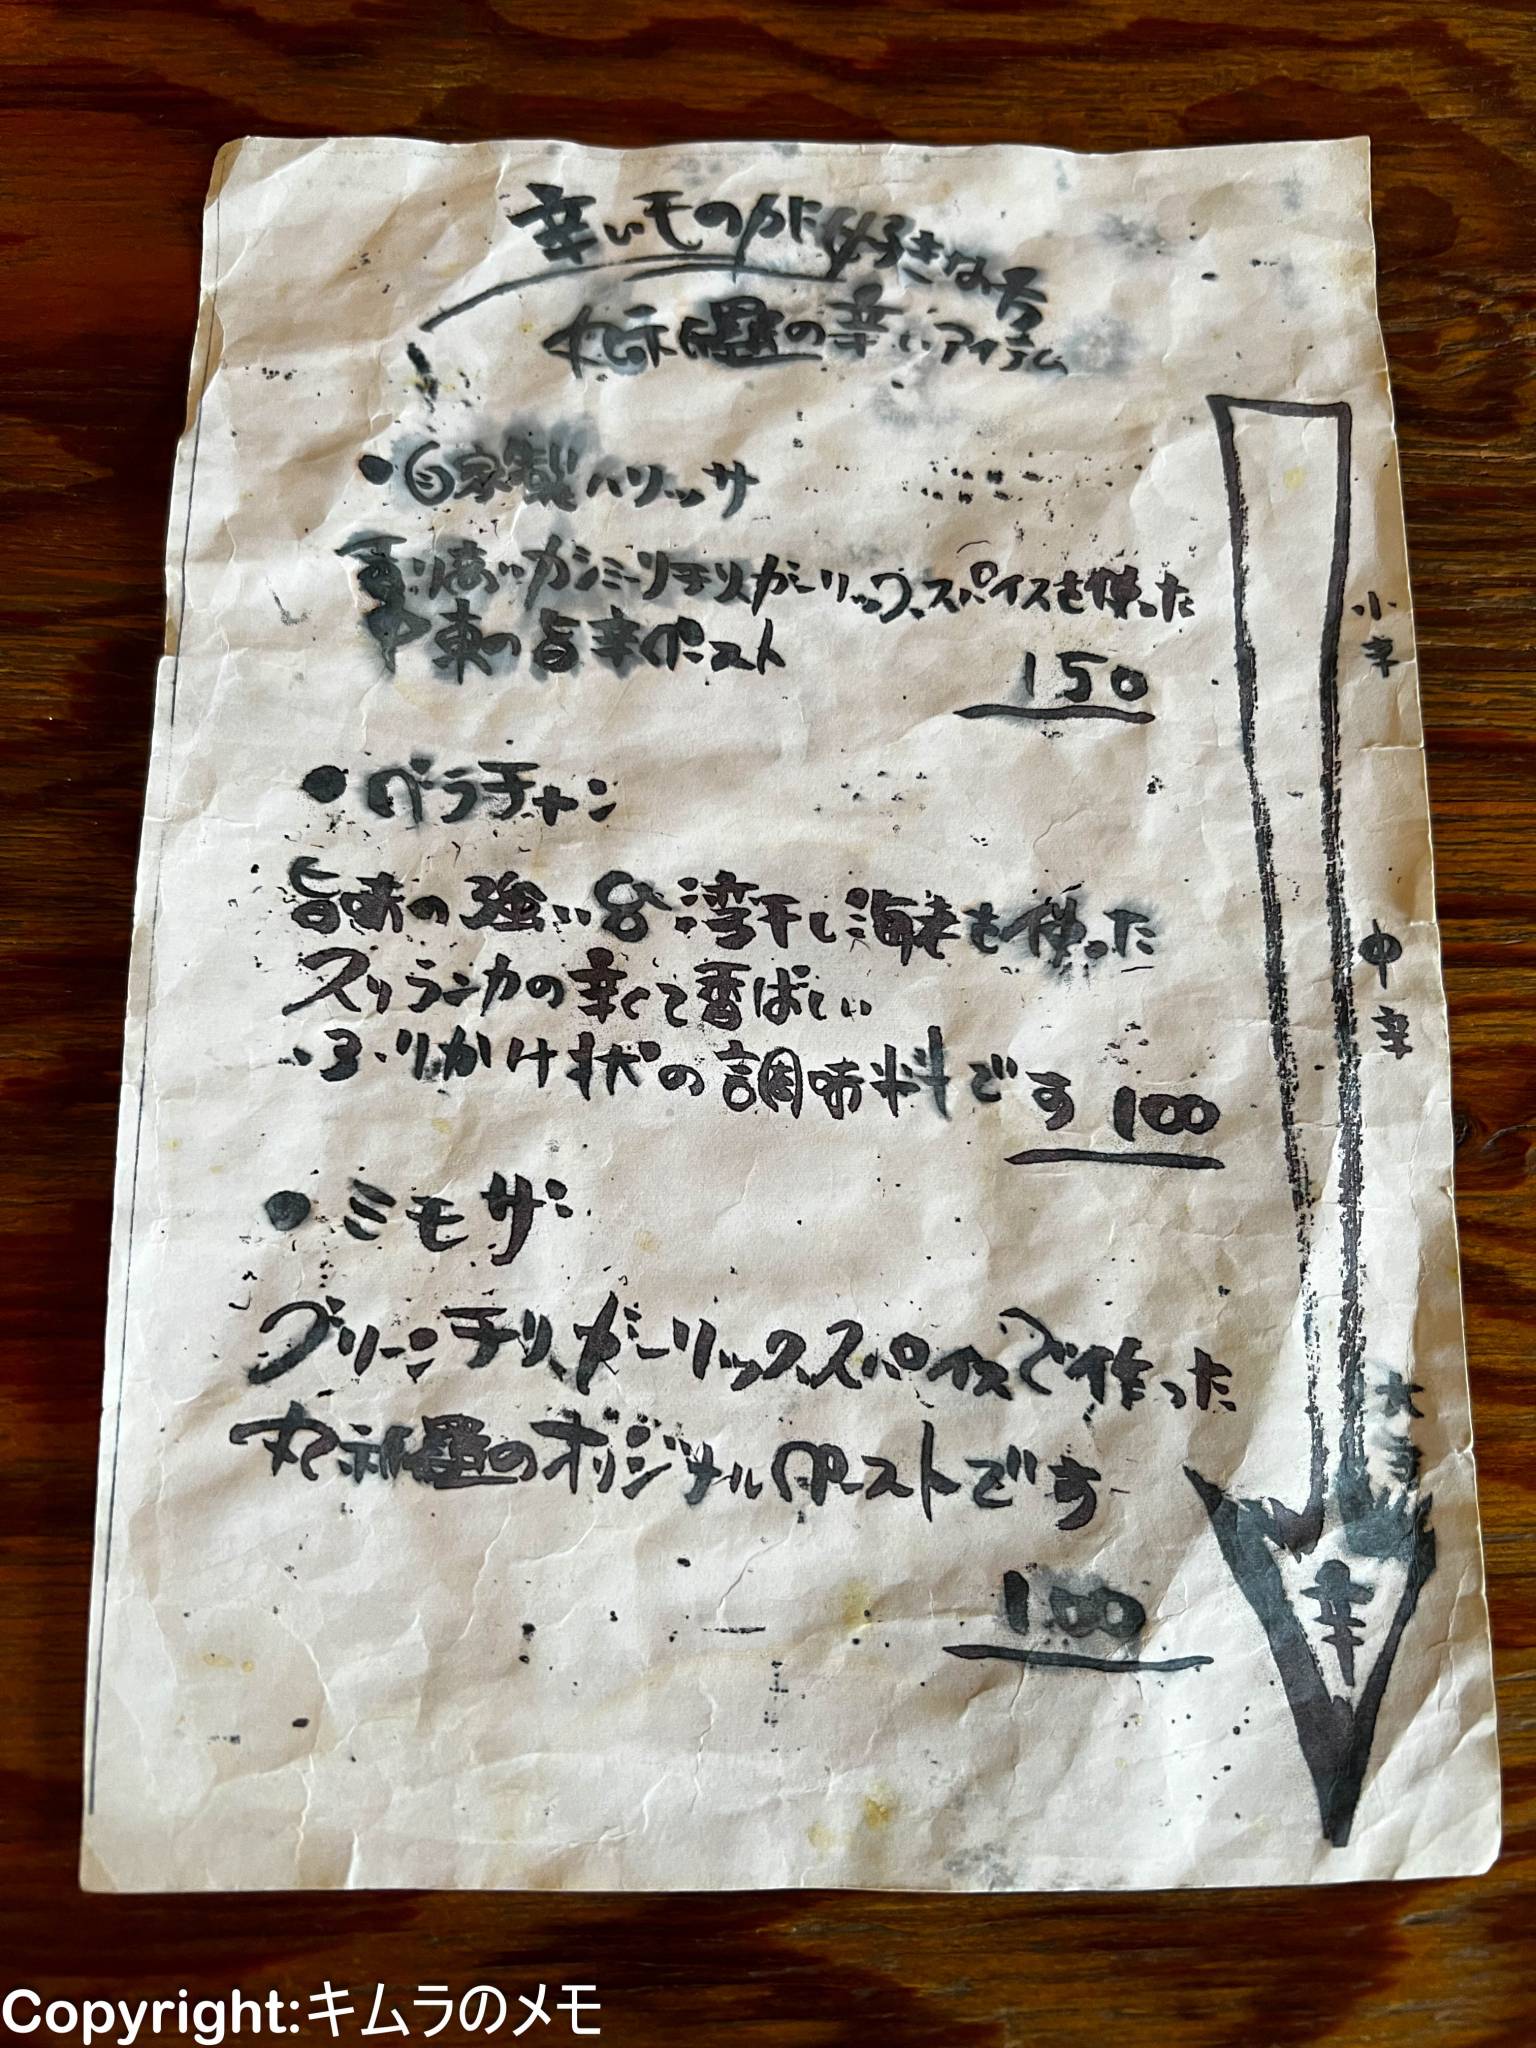 辛いモのが好きな方
丸祇羅の辛いアイテム
●自家製ハリッサ
香りあいカシミーリチリ、ガーリック、スパイスを使った
中東の旨辛ペースト
150
小辛
●ベラチャン
旨味の強い台湾干し海老を使った
スリランカの辛くて香ばしい
ふりかけ状の調味料です 100
中辛
●ミモザ
グリーンチリ、ガーリック、スパイスで作った
丸祇羅のオリジナルペーストです
大辛
100
辛
Copyright:キムラのメモ